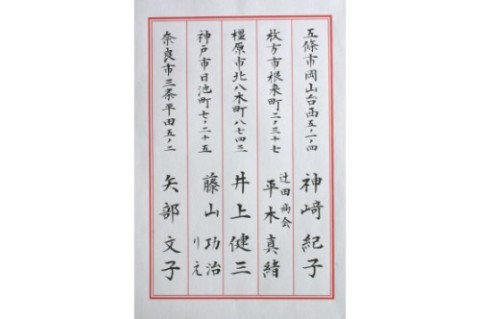 五條市岡山台西五ノ一ノ四
神﨑紀子
枚方市桜来町二ノ三十七
辻田商会
平木真緒
橿原市北八木町八七四三
井上健三
神戸市日池町七ノ二十五
藤山功治
りえ
奈良市三条平田五ノ二
矢部文子